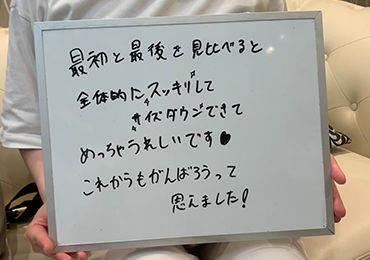 最初と最後を見比べると
全体的に"スッキリ"して
サイズダウンできて
めっちゃうれしいです♥
これからもがんばろうって
思えました!